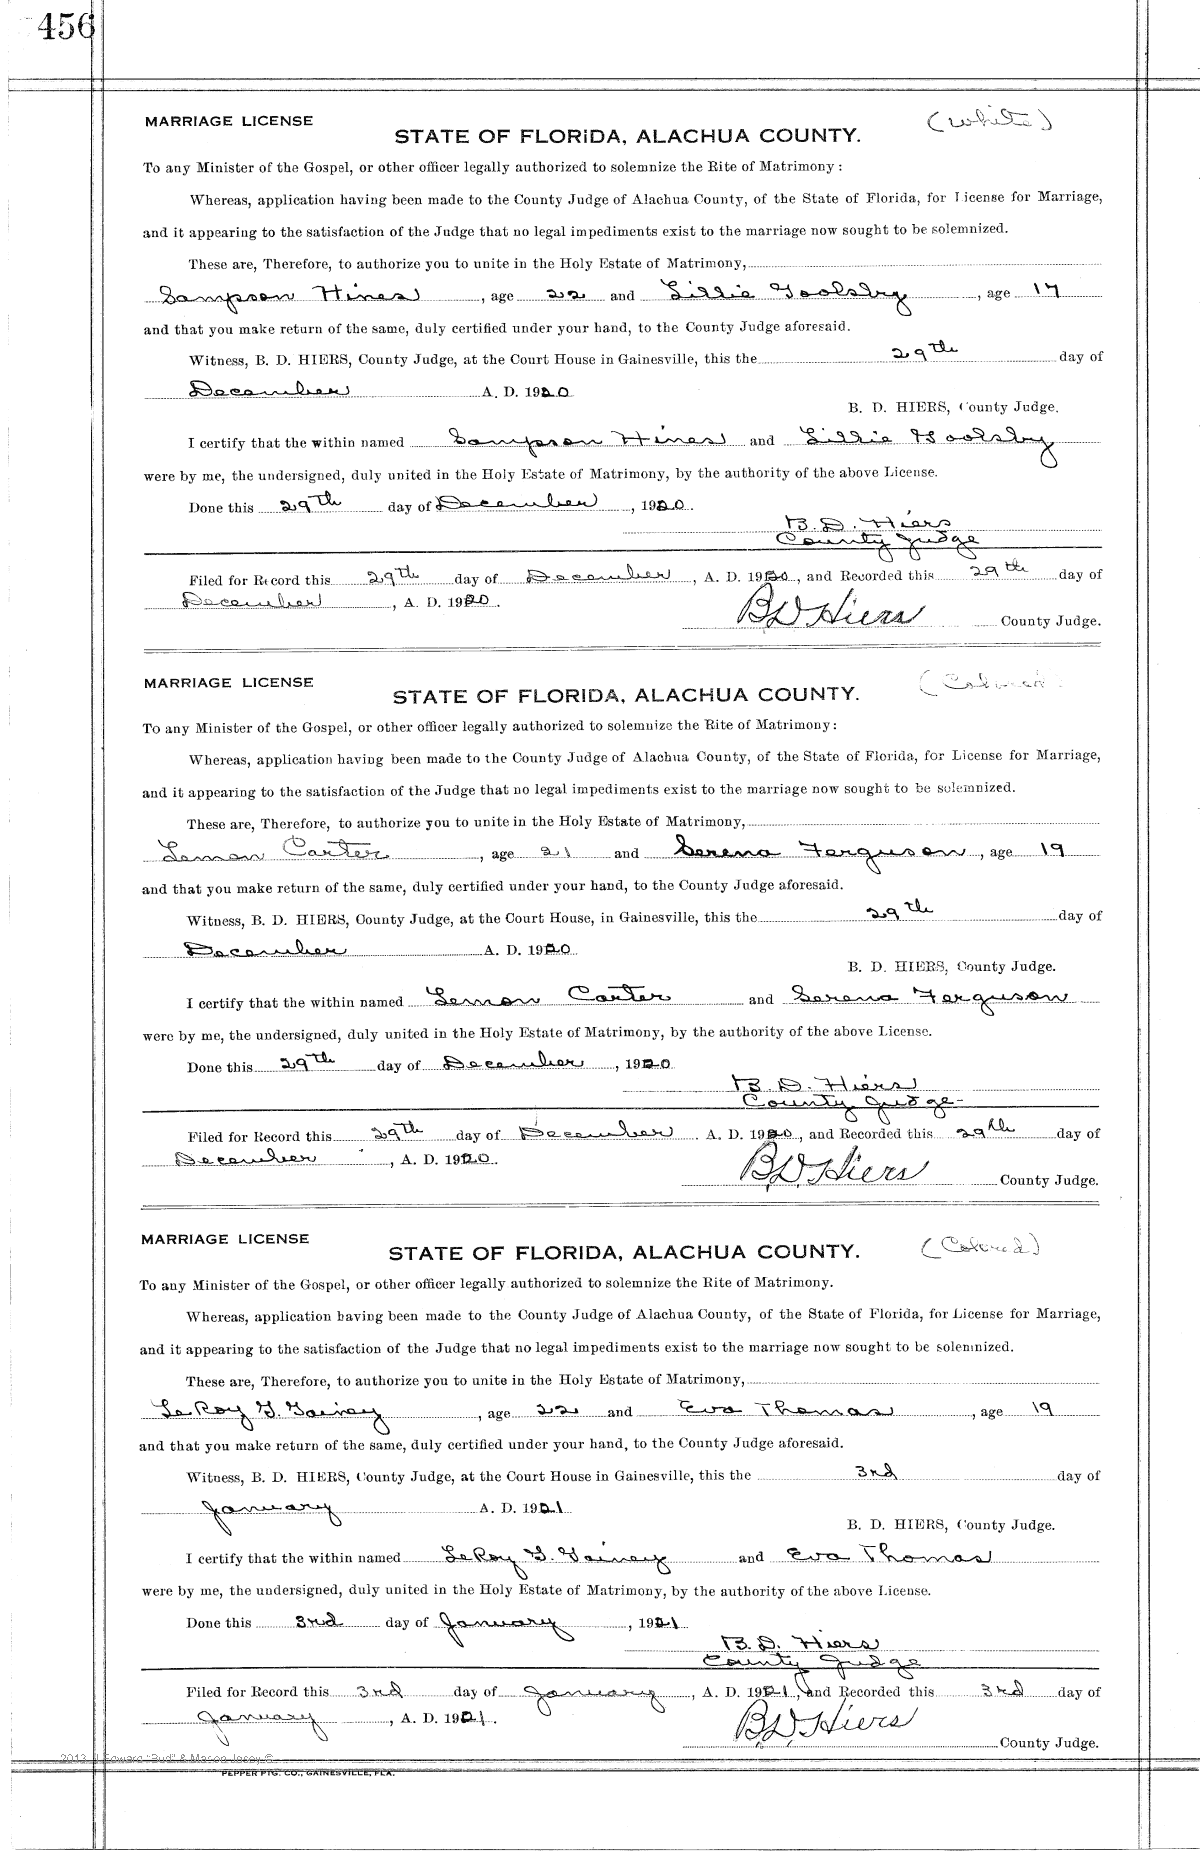 456
MARRIAGE LICENSE
(White)
STATE OF FLORIDA, ALACHUA COUNTY.
To any Minister of the Gospel, or other officer legally authorized to solemnize the Rite of Matrimony:
Whereas, application having been made to the County Judge of Alachua County, of the State of Florida, for License for Marriage,
and it appearing to the satisfaction of the Judge that no legal impediments exist to the marriage now sought to be solemnized.
These are, Therefore, to authorize you to unite in the Holy Estate of Matrimony,
Sampson Hines, age 22 and Lillie Goolsby, age 17
and that you make return of the same, duly certified under your hand, to the County Judge aforesaid.
Witness, B. D. HIERS, County Judge, at the Court House in Gainesville, this the 29th day of
December A. D. 1920
B. D. HIERS, County Judge.
I certify that the within named Sampson Hines and Lillie Goolsby
were by me, the undersigned, duly united in the Holy Estate of Matrimony, by the authority of the above License.
Done this 29th day of December, 1920.
B. D. Hiers
County Judge
Filed for Record this 29th day of December, A. D. 1920, and Recorded this 29th day of
December, A. D. 1920.
B D Hiers County Judge.
MARRIAGE LICENSE
(Colored)
STATE OF FLORIDA, ALACHUA COUNTY.
To any Minister of the Gospel, or other officer legally authorized to solemnize the Rite of Matrimony:
Whereas, application having been made to the County Judge of Alachua County, of the State of Florida, for License for Marriage,
and it appearing to the satisfaction of the Judge that no legal impediments exist to the marriage now sought to be solemnized.
These are, Therefore, to authorize you to unite in the Holy Estate of Matrimony,
Lemon Carter, age 21 and Serena Ferguson, age 19
and that you make return of the same, duly certified under your hand, to the County Judge aforesaid.
Witness, B. D. HIERS, County Judge, at the Court House, in Gainesville, this the 29th day of
December A. D. 1920
B. D. HIERS, County Judge.
I certify that the within named Lemon Carter and Serena Ferguson
were by me, the undersigned, duly united in the Holy Estate of Matrimony, by the authority of the above License.
Done this 29th day of December, 1920
B. D. Hiers
County Judge-
Filed for Record this 29th day of December. A. D. 1920, and Recorded this 29th day of
December, A. D. 1920.
B. D. Hiers County Judge.
MARRIAGE LICENSE
(Colored)
STATE OF FLORIDA, ALACHUA COUNTY.
To any Minister of the Gospel, or other officer legally authorized to solemnize the Rite of Matrimony.
Whereas, application having been made to the County Judge of Alachua County, of the State of Florida, for License for Marriage,
and it appearing to the satisfaction of the Judge that no legal impediments exist to the marriage now sought to be solemnized.
These are, Therefore, to authorize you to unite in the Holy Estate of Matrimony,
LeRoy G. Gainey, age 22 and Eva Thomas, age 19
and that you make return of the same, duly certified under your hand, to the County Judge aforesaid.
Witness, B. D. HIERS, County Judge, at the Court House in Gainesville, this the 3rd day of
January A. D. 1921
B. D. HIERS, County Judge.
I certify that the within named LeRoy G. Gainey and Eva Thomas
were by me, the undersigned, duly united in the Holy Estate of Matrimony, by the authority of the above License.
Done this 3rd day of January, 1921
B. D. Hiers
County Judge
Filed for Record this 3rd day of January, A. D. 1921, and Recorded this 3rd day of
January, A. D. 1921.
B. D. Hiers County Judge.
2013 Edward "Bud" & Mason ©
PEPPER PTG. CO., GAINESVILLE, FLA.